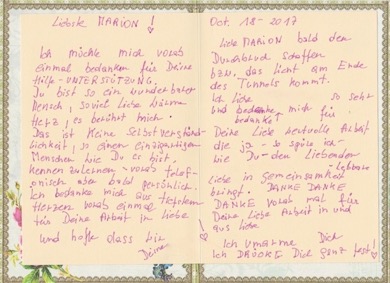 Liebste MARION !
Ich möchte mich vorab
einmal bedanken für Deine
Hilfe-UNTERSTÜTZUNG.
Du bist so ein wunderbarer
Mensch, so viel Liebe Wärme
Herz, es berührt mich.
Das ist keine Selbstverständ-
lichkeit, so einen einzigartigen
Menschen wie Du es bist,
kennen zulernen - vorab telef-
onisch aber bald persönlich.
Ich bedanke mich aus tiefstem
Herzen vorab einmal
für Deine Arbeit in Liebe
und hoffe dass wir
Oct. 18-2017
Liebe MARION bald den
Durchbruch schaffen
bzw. das Licht am Ende
des Tunnels kommt.
Ich so sehr
und mich für
bedankt
Deine Liebe wertvolle Arbeit
die ja - so spüre ich -
wie Du - den Liebenden
Liebe in Gemeinsamkeit
bringt. DANKE DANKE
DANKE vorab mal für
Deine Liebe Arbeit in und
aus Liebe
Ich Umarme Dich
Ich DRÜCKE Dich ganz fest !